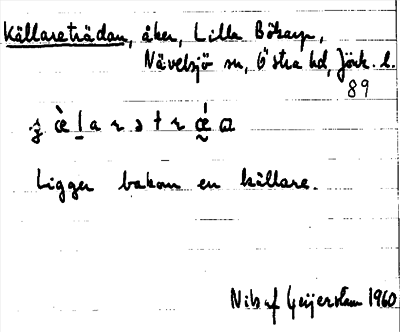 Källareträdan, åker, Lilla Bökarp,
Nävelsjö sn, Östra hd, Jönk. l.
89
Ligger bakom en källare.
Nils af Geijerstam 1960